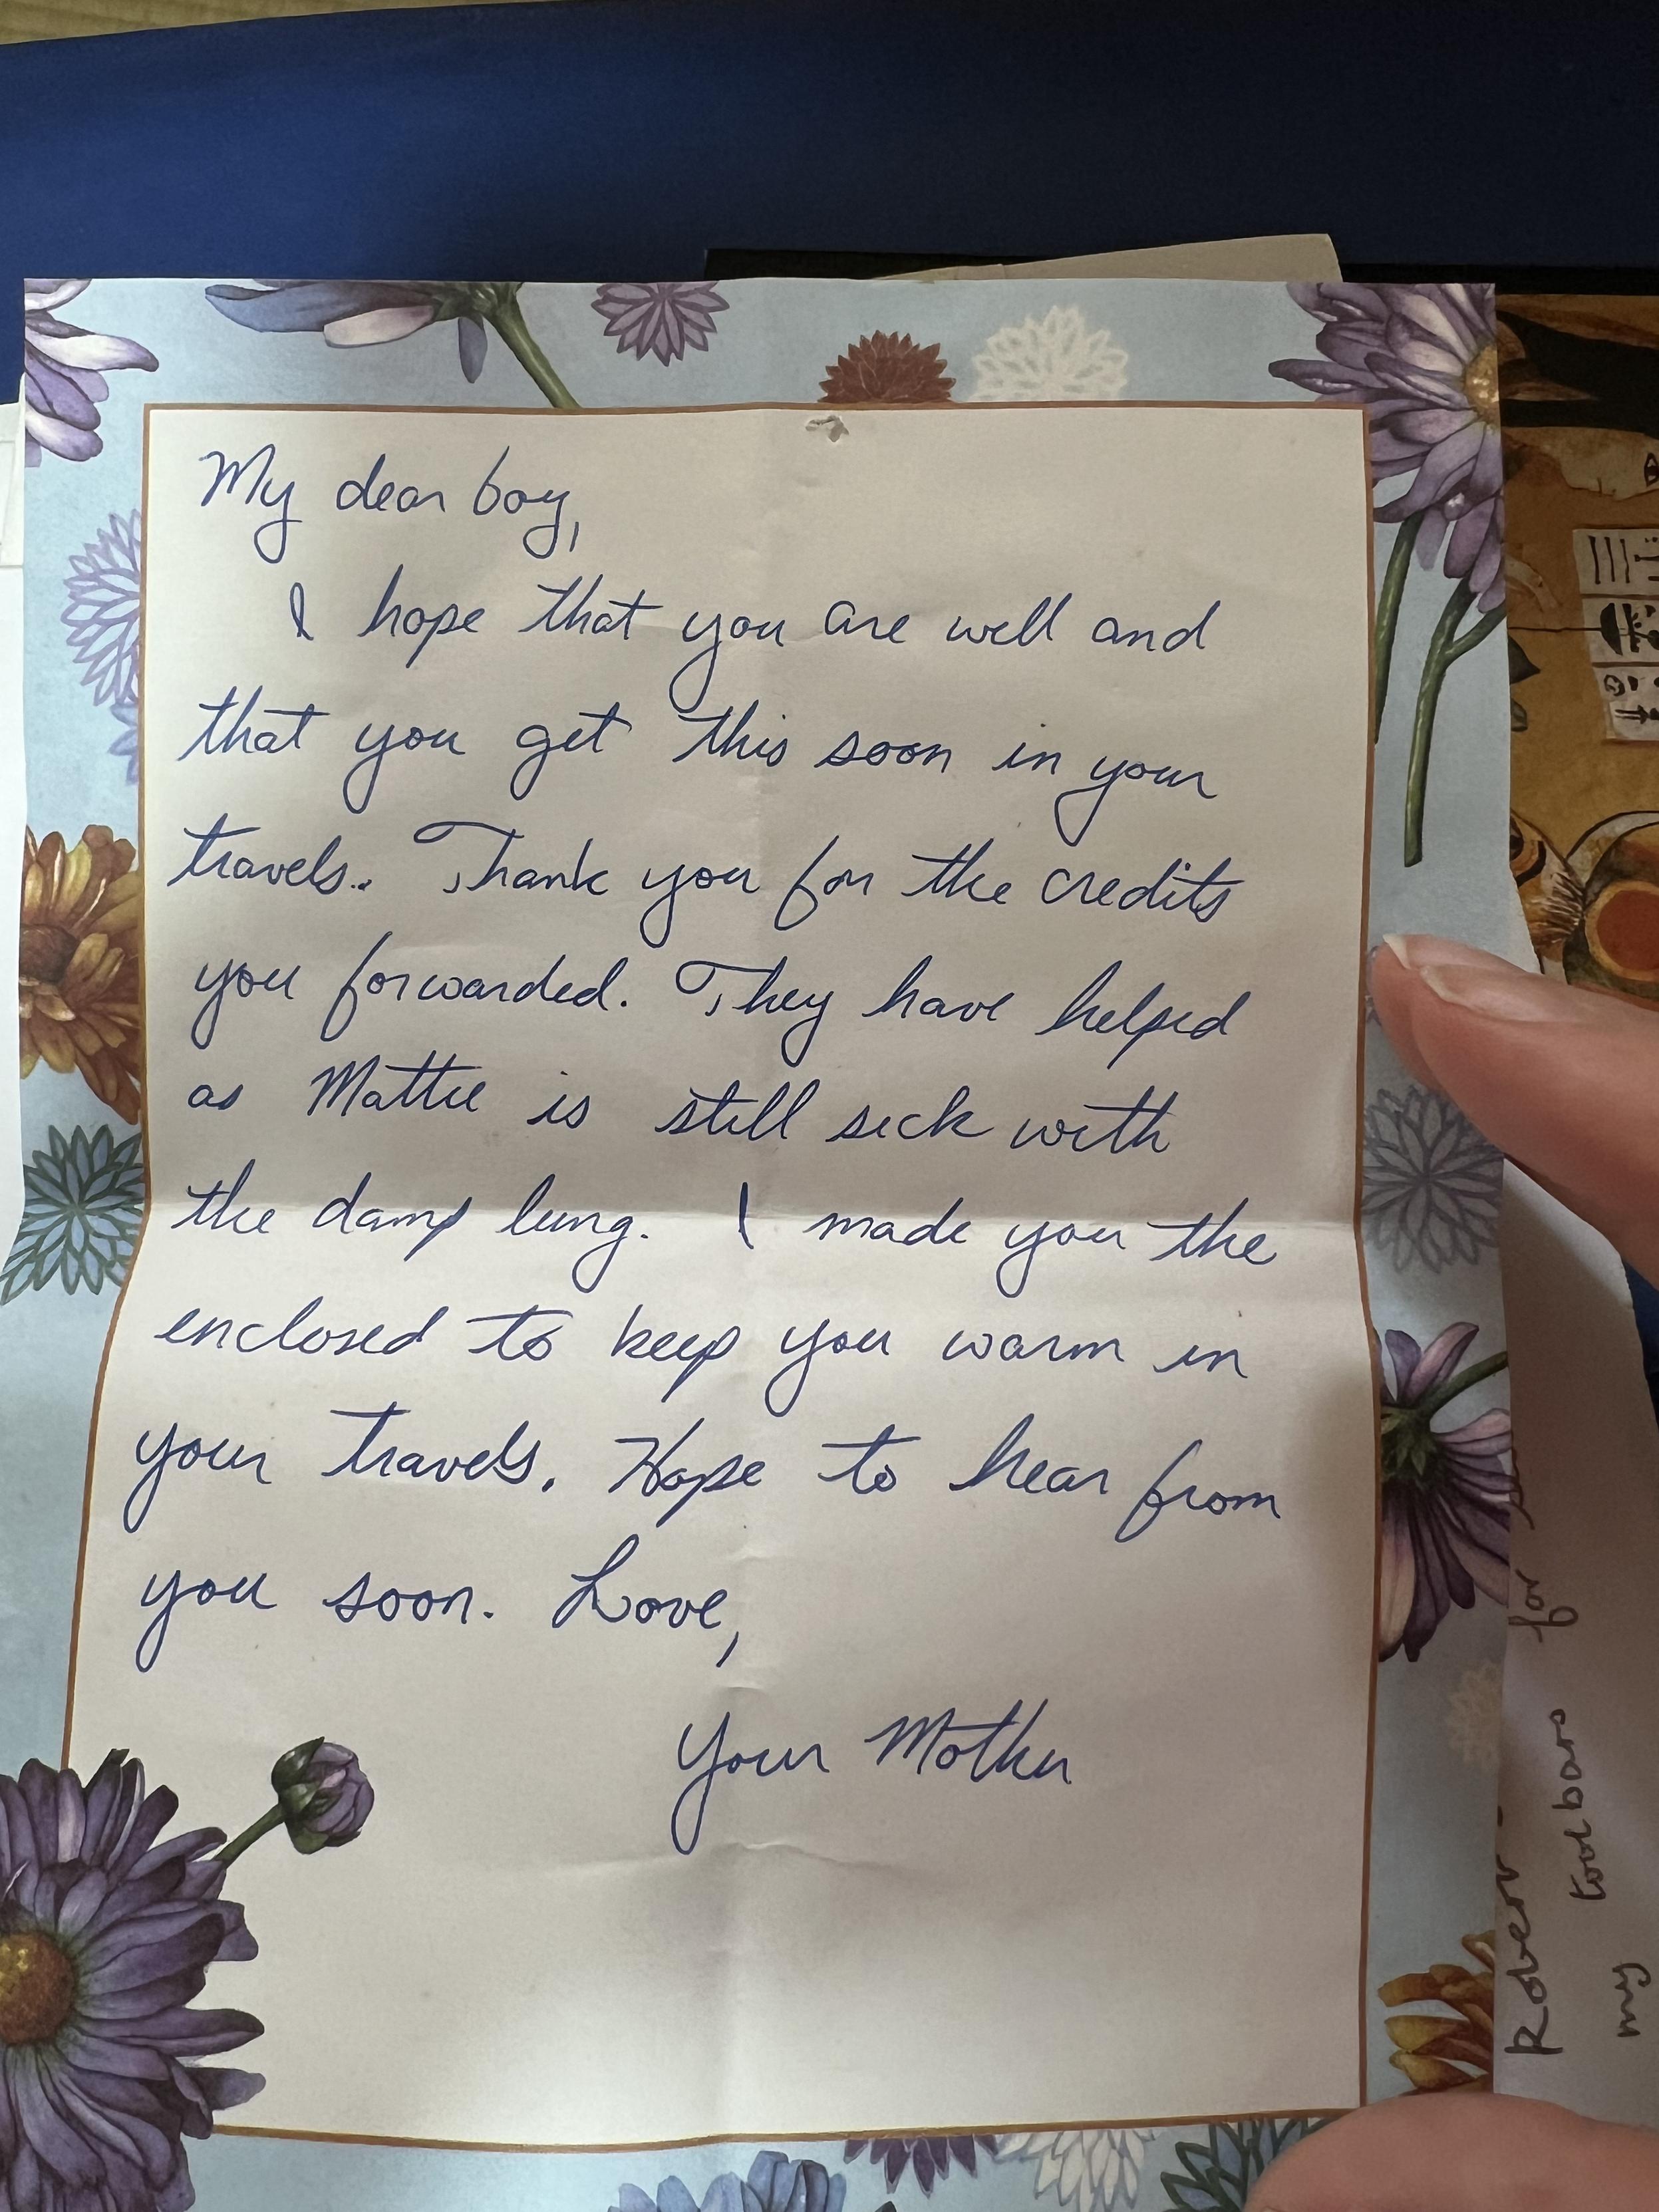 My dear boy,
I hope that you are well and
that you get this soon in your
travels.. Thank you for the credits
you forwarded. They have helped
as Mattie is still sick with
the damp lung. I made you the
enclosed to keep you warm in
your travels. Hope to hear from
you soon. Love,
Your Mother
Robert
for
tool bars
my